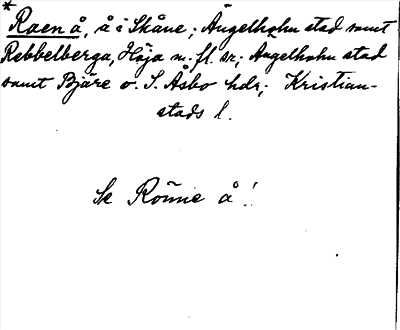 * Raen å, å i Skåne; Ängelholm stad samt
Rebbelberga, Höja m. fl. sr; Ängelholm stad
samt Bjäre o. S. Åsbo hdr; Kristian-
stads l.
Se Rönne å!